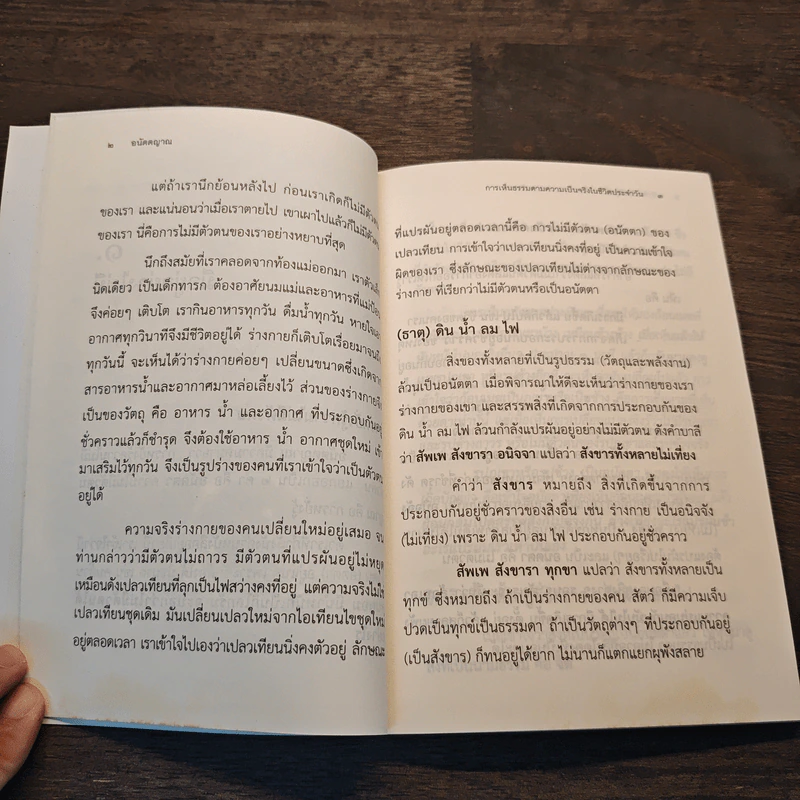 ๒ อนัตตญาณ
แต่ถ้าเรานึกย้อนหลังไป ก่อนเราเกิดก็ไม่มีตัวตน
ของเรา และแน่นอนว่าเมื่อเราตายไป เขาเผาไปแล้วก็ไม่มีตัวตน
ของเรา นี่คือการไม่มีตัวตนของเราอย่างหยาบที่สุด
นึกถึงสมัยที่เราคลอดจากท้องแม่ออกมา เราตัวเล็ก
นิดเดียว เป็นเด็กทารก ต้องอาศัยนมแม่และอาหารที่แม่ป้อน
จึงค่อยๆ เติบโต เรากินอาหารทุกวัน ดื่มน้ำทุกวัน หายใจเอา
อากาศทุกวินาทีจึงมีชีวิตอยู่ได้ ร่างกายก็เติบโตเรื่อยมาจนถึง
ทุกวันนี้ จะเห็นได้ว่าร่างกายค่อยๆ เปลี่ยนขนาดซึ่งเกิดจาก
สารอาหารน้ำและอากาศมาหล่อเลี้ยงไว้ ส่วนของร่างกายจึง
เป็นของวัตถุ คือ อาหาร น้ำ และอากาศ ที่ประกอบกันอยู่
ชั่วคราวแล้วก็ชำรุด จึงต้องใช้อาหาร น้ำ อากาศชุดใหม่ เข้า
มาเสริมไว้ทุกวัน จึงเป็นรูปร่างของคนที่เราเข้าใจว่าเป็นตัวตน
อยู่ได้
ความจริงร่างกายของคนเปลี่ยนใหม่อยู่เสมอ จน
ท่านกล่าวว่ามีตัวตนไม่ถาวร มีตัวตนที่แปรผันอยู่ไม่หยุด
เหมือนดังเปลวเทียนที่ลุกเป็นไฟสว่างคงที่อยู่ แต่ความจริงไม่ใช่
เปลวเทียนชุดเดิม มันเปลี่ยนเปลวใหม่จากไอเทียนไขชุดใหม่
อยู่ตลอดเวลา เราเข้าใจไปเองว่าเปลวเทียนนิ่งคงตัวอยู่ ลักษณะ
การเห็นธรรมตามความเป็นจริงในชีวิตประจำวัน ๓
ที่แปรผันอยู่ตลอดเวลานี้คือ การไม่มีตัวตน (อนัตตา) ของ
เปลวเทียน การเข้าใจว่าเปลวเทียนนิ่งคงที่อยู่ เป็นความเข้าใจ
ผิดของเรา ซึ่งลักษณะของเปลวเทียนไม่ต่างจากลักษณะของ
ร่างกาย ที่เรียกว่าไม่มีตัวตนหรือเป็นอนัตตา
(ธาตุ) ดิน น้ำ ลม ไฟ
สิ่งของทั้งหลายที่เป็นรูปธรรม (วัตถุและพลังงาน)
ล้วนเป็นอนัตตา เมื่อพิจารณาให้ดีจะเห็นว่าร่างกายของเรา
ร่างกายของเขา และสรรพสิ่งที่เกิดจากการประกอบกันของ
ดิน น้ำ ลม ไฟ ล้วนกำลังแปรผันอยู่อย่างไม่มีตัวตน ดังคำบาลี
ว่า สัพเพ สังขารา อนิจจา แปลว่า สังขารทั้งหลายไม่เที่ยง
คำว่า สังขาร หมายถึง สิ่งที่เกิดขึ้นจากการ
ประกอบกันอยู่ชั่วคราวของสิ่งอื่น เช่น ร่างกาย เป็นอนิจจัง
(ไม่เที่ยง) เพราะ ดิน น้ำ ลม ไฟ ประกอบกันอยู่ชั่วคราว
สัพเพ สังขารา ทุกขา แปลว่า สังขารทั้งหลายเป็น
ทุกข์ ซึ่งหมายถึง ถ้าเป็นร่างกายของคน สัตว์ ก็มีความเจ็บ
ปวดเป็นทุกข์เป็นธรรมดา ถ้าเป็นวัตถุต่างๆ ที่ประกอบกันอยู่
(เป็นสังขาร) ก็ทนอยู่ได้ยาก ไม่นานก็แตกแยกผุพังสลาย